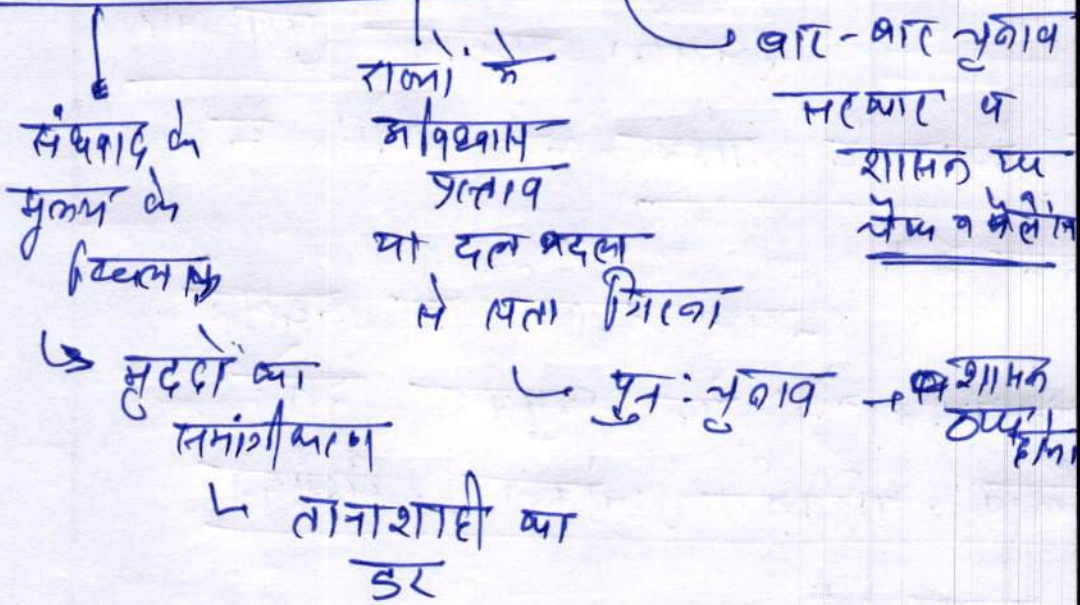 संघवाद के
मुल्यों के
खिलाफ
↳ मुद्दों का
समांगीकरण
↳ तानाशाही का
डर
राज्यों में
अविश्वास
प्रस्ताव
या दल बदल
से सत्ता गिरना
↳ पुन: चुनाव → शासन
ठप्प होना
→ बार-बार चुनाव
सरकार व
शासन पर
चेक व बैलेंस